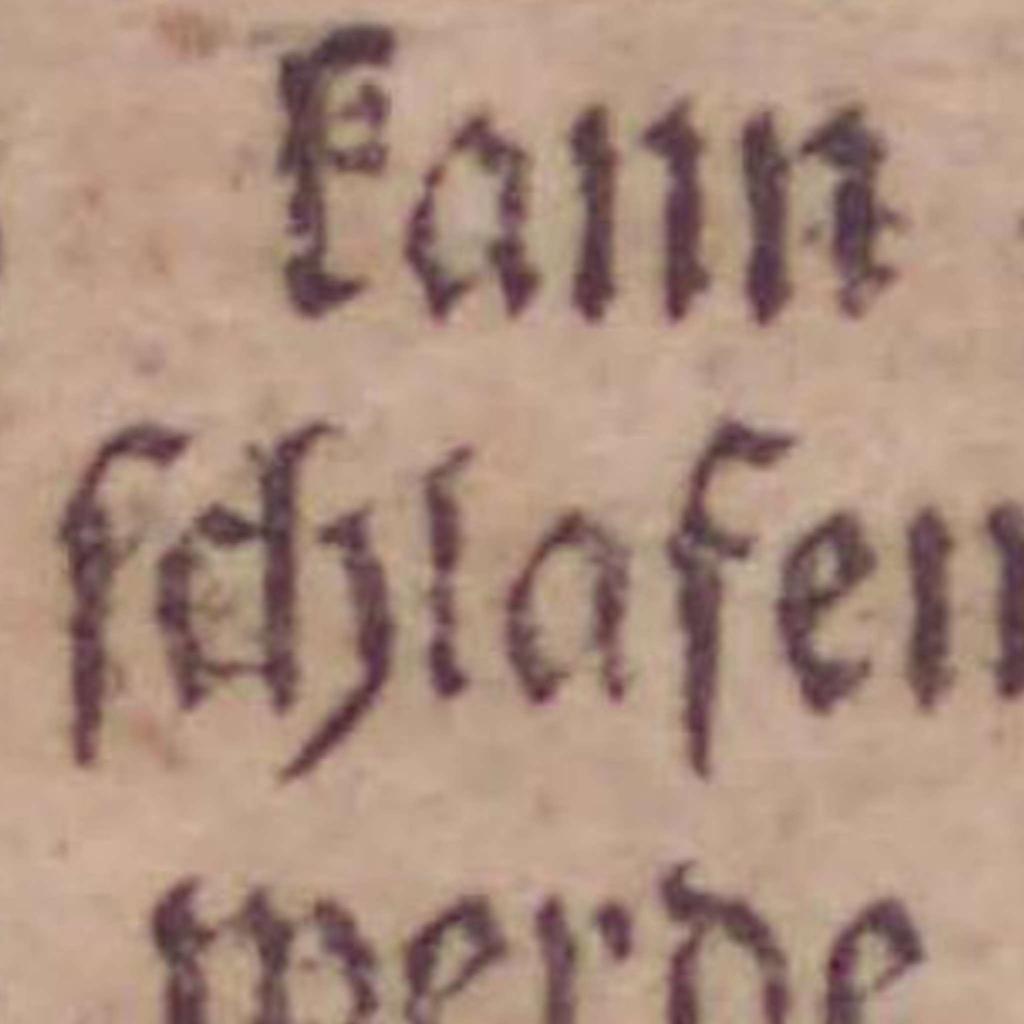 kann
ſchlafen
werde